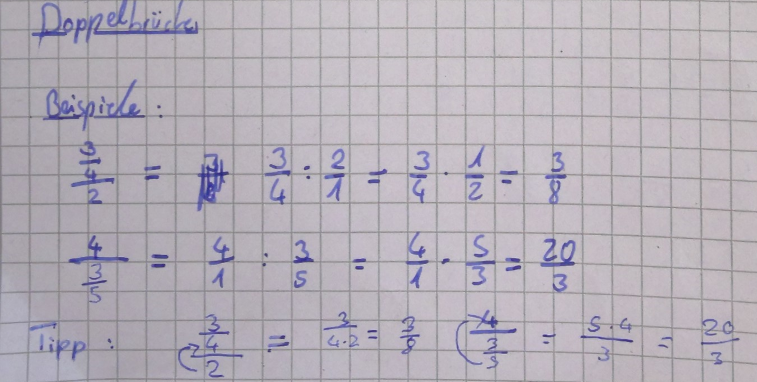 Doppelbrüche
Beispiele:
(3/4)/2 = 3/4 : 2/1 = 3/4 · 1/2 = 3/8
4/(3/5) = 4/1 : 3/5 = 4/1 · 5/3 = 20/3
Tipp: (3/4)/2 = 3/(4·2) = 3/8 4/(3/5) = (5·4)/3 = 20/3